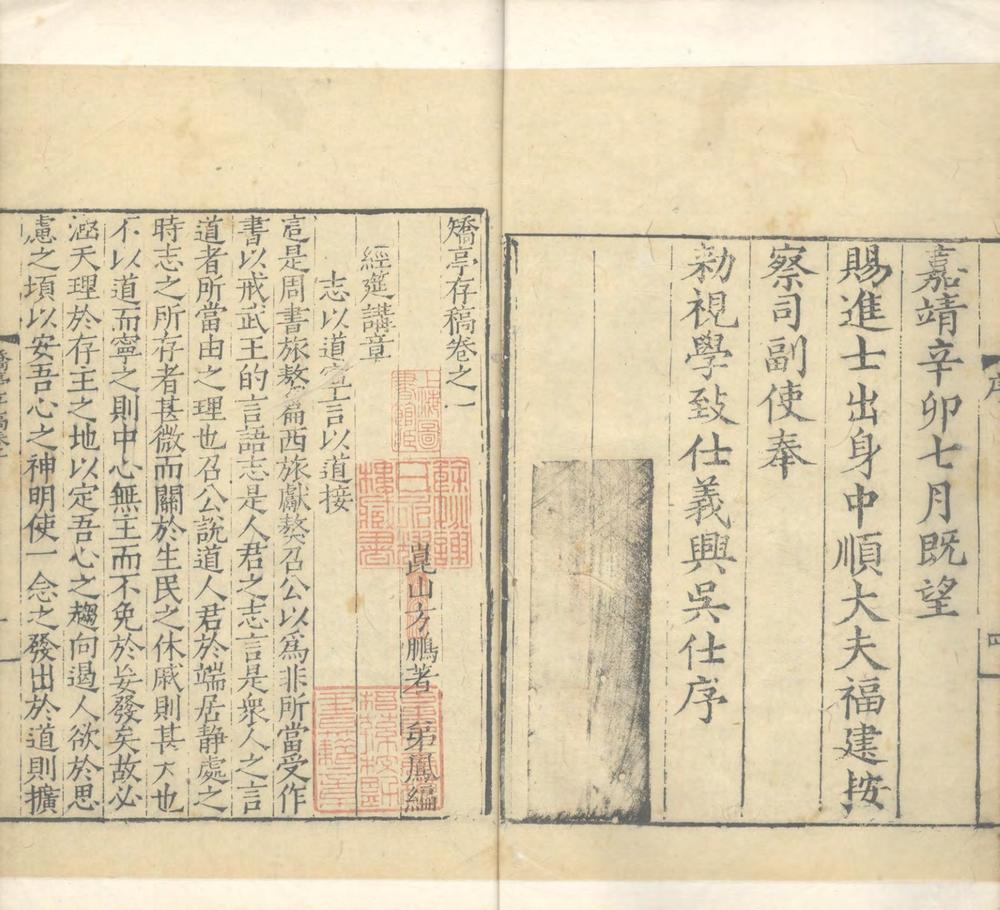 嘉靖辛卯七月既望
賜進士出身中順大夫福建按
察司副使奉
勑視學致仕義興吳仕序
序
四
矯亭存稿卷之一
崑山方鵬著 弟鳳編
經筵講章
志以道寧言以道接
這是周書旅獒篇西旅獻獒召公以爲非所當受作
書以戒武王的言語志是人君之志言是衆人之言
道者所當由之理也召公說道人君於端居静處之
時志之所存者甚微而關於生民之休戚則甚大也
不以道而寧之則中心無主而不免於妄發矣故必
涵天理於存主之地以定吾心之趨向遏人欲於思
慮之頃以安吾心之神明使一念之發出於道則擴
矯亭存稿卷之一
一
上海圖書館藏